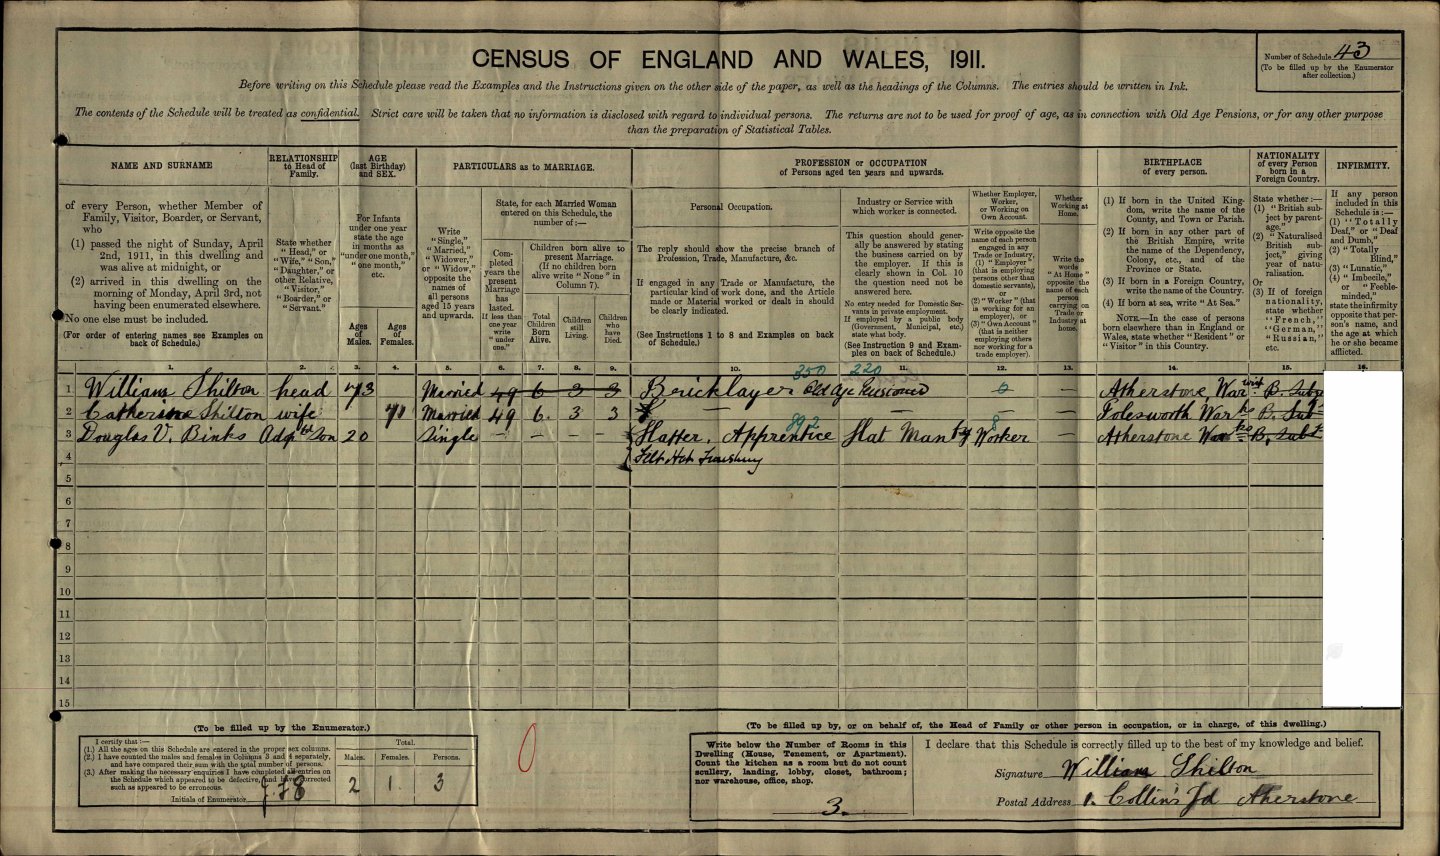 CENSUS OF ENGLAND AND WALES, 1911.
Number of Schedule 43
(To be filled up by the Enumerator
after collection.)
Before writing on this Schedule please read the Examples and the Instructions given on the other side of the paper, as well as the headings of the Columns. The entries should be written in Ink.
The contents of the Schedule will be treated as confidential. Strict care will be taken that no information is disclosed with regard to individual persons. The returns are not to be used for proof of age, as in connection with Old Age Pensions, or for any other purpose
than the preparation of Statistical Tables.
NAME AND SURNAME
of every Person, whether Member of
Family, Visitor, Boarder, or Servant,
who
(1) passed the night of Sunday, April
2nd, 1911, in this dwelling and
was alive at midnight, or
(2) arrived in this dwelling on the
morning of Monday, April 3rd, not
having been enumerated elsewhere.
No one else must be included.
(For order of entering names see Examples on
back of Schedule.)
RELATIONSHIP
to Head of
Family.
State whether
"Head," or
"Wife," "Son,"
"Daughter," or
other Relative,
"Visitor,"
"Boarder," or
"Servant."
AGE
(last Birthday)
and SEX.
For Infants
under one year
state the age
in months as
"under one month,"
"one month,"
etc.
Ages
of
Males.
Ages
of
Females.
PARTICULARS as to MARRIAGE.
Write
"Single,"
"Married,"
"Widower,"
or "Widow,"
opposite the
names of
all persons
aged 15 years
and upwards.
State, for each Married Woman
entered on this Schedule, the
number of:—
Completed
years the
present
Marriage
has
lasted.
If less than
one year
write
"under
one."
Children born alive to
present Marriage.
(If no children born
alive write "None" in
Column 7).
Total
Children
Born
Alive.
Children
still
Living.
Children
who
have
Died.
PROFESSION or OCCUPATION
of Persons aged ten years and upwards.
Personal Occupation.
The reply should show the precise branch of
Profession, Trade, Manufacture, &c.
If engaged in any Trade or Manufacture, the
particular kind of work done, and the Article
made or Material worked or dealt in should
be clearly indicated.
(See Instructions 1 to 8 and Examples on back
of Schedule.)
Industry or Service with
which worker is connected.
This question should generally
be answered by stating
the business carried on by
the employer. If this is
clearly shown in Col. 10
the question need not be
answered here.
No entry needed for Domestic Servants
in private employment.
If employed by a public body
(Government, Municipal, etc.)
state what body.
(See Instruction 9 and Examples
on back of Schedule.)
Whether Employer,
Worker,
or Working on
Own Account.
Write opposite the
name of each person
engaged in any
Trade or Industry,
(1) "Employer"
(that is employing
persons other than
domestic servants),
or
(2) "Worker" (that
is working for an
employer), or
(3) "Own Account"
(that is neither
employing others
nor working for a
trade employer).
Whether
Working at
Home.
Write the
words
"At Home"
opposite the
name of each
person
carrying on
Trade or
Industry at
home.
BIRTHPLACE
of every person.
(1) If born in the United Kingdom,
write the name of the
County, and Town or Parish.
(2) If born in any other part of
the British Empire, write
the name of the Dependency,
Colony, etc., and of the
Province or State.
(3) If born in a Foreign Country,
write the name of the Country.
(4) If born at sea, write "At Sea."
NOTE.—In the case of persons
born elsewhere than in England or
Wales, state whether "Resident" or
"Visitor" in this Country.
NATIONALITY
of every Person
born in a
Foreign Country.
State whether:—
(1) "British subject
by parentage."
(2) "Naturalised
British subject,"
giving
year of naturalisation.
Or
(3) If of foreign
nationality,
state whether
"French,"
"German,"
"Russian,"
etc.
INFIRMITY.
If any person
included in this
Schedule is:—
(1) "Totally
Deaf," or "Deaf
and Dumb,"
(2) "Totally
Blind,"
(3) "Lunatic,"
(4) "Imbecile,"
or "Feeble-minded,"
state the infirmity
opposite that person's
name, and
the age at which
he or she became
afflicted.
1. 2. 3. 4. 5. 6. 7. 8. 9. 10. 11. 12. 13. 14. 15. 16.
350 220
1 William Shilton head 73 Married 49 6 3 3 Bericklayer Old Age Pensioner 0 Atherstone, War B. Subj
2 Catherine Shilton wife 71 Married 49 6. 3 3 — — — Polesworth Warks Br. Subt
892 8
3 Douglas V. Binks Adptd Son 20 Single — — — — Hatter. Apprentice Hat Manfy Worker — Atherstone Warks B. Subt
4 Felt Hat Finishing
5
6
7
8
9
10
11
12
13
14
15
(To be filled up by the Enumerator.)
I certify that:—
(1.) All the ages on this Schedule are entered in the proper sex columns.
(2.) I have counted the males and females in Columns 3 and 4 separately,
and have compared their sum with the total number of persons.
(3.) After making the necessary enquiries I have completed all entries on
the Schedule which appeared to be defective, and have corrected
such as appeared to be erroneous.
Initials of Enumerator
Total.
Males. Females. Persons.
2 1. 3
0
(To be filled up by, or on behalf of, the Head of Family or other person in occupation, or in charge, of this dwelling.)
Write below the Number of Rooms in this
Dwelling (House, Tenement, or Apartment).
Count the kitchen as a room but do not count
scullery, landing, lobby, closet, bathroom;
nor warehouse, office, shop.
3.
I declare that this Schedule is correctly filled up to the best of my knowledge and belief.
Signature William Shilton
Postal Address 1. Collin's Yd Atherstone